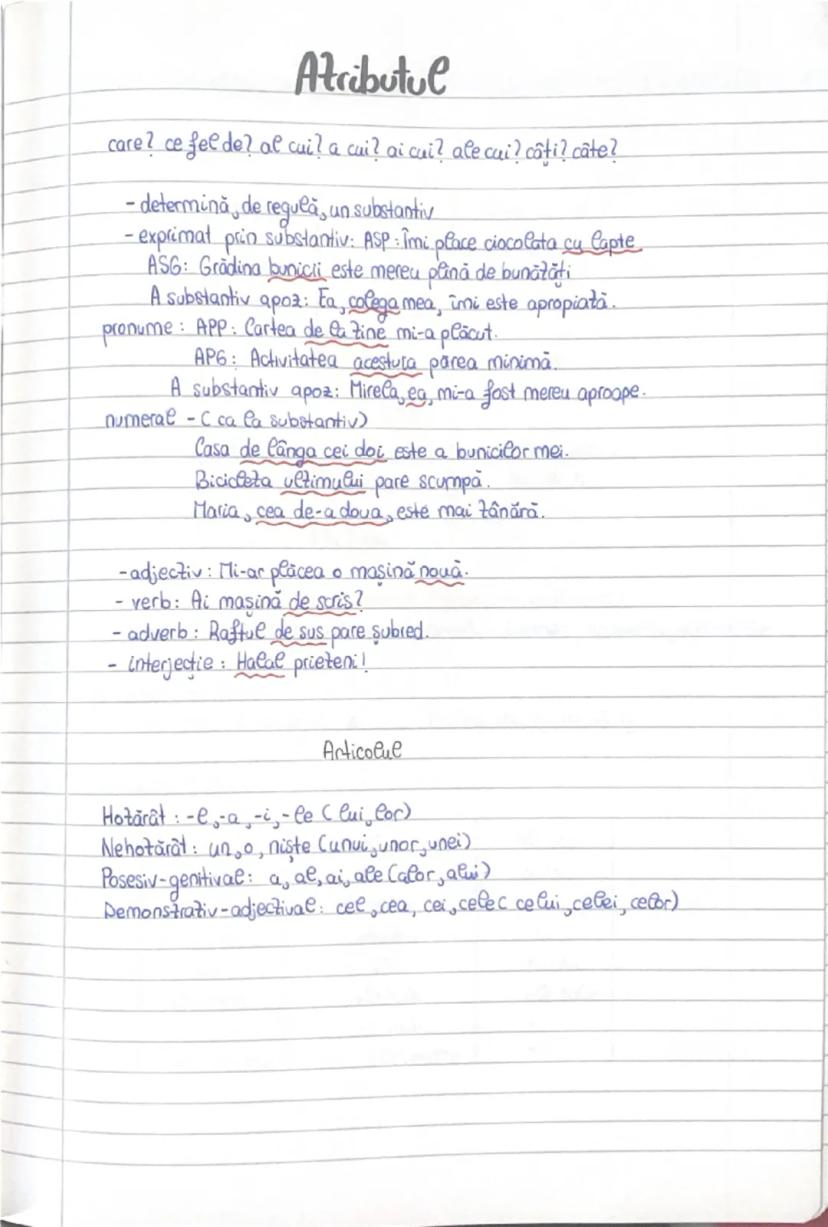 Atributul
care? ce fel de? al cui? a cui? ai cui? ale cui? câți? câte?
- determină, de regulă, un substantiv
- exprimat prin substantiv: ASP: Îmi place ciocolata cu lapte
ASG: Grădina bunicii este mereu plină de bunătăți
A substantiv apoz: Ea, colega mea, îmi este apropiată.
pronume: APP: Cartea de la tine mi-a plăcut.
APG: Activitatea acestura părea minimă.
A substantiv apoz: Mirela, ea, mi-a fost mereu aproape.
numeral - (ca la substantiv)
Casa de lânga cei doi este a bunicilor mei.
Bicicleta ultimului pare scumpă.
Maria, cea de-a doua, este mai tânără.
- adjectiv: Mi-ar plăcea o mașină nouă.
- verb: Ai mașină de scris?
- adverb: Raftul de sus pare șubred.
- interjecție: Halal prieteni!
Articolul
Hotărât: -l, -a, -i, -le (lui, lor)
Nehotărât: un, o, niște (unui, unor, unei)
Posesiv-genitival: a, al, ai, ale (alor, alui)
Demonstrativ-adjectival: cel, cea, cei, cele( celui, celei, celor)